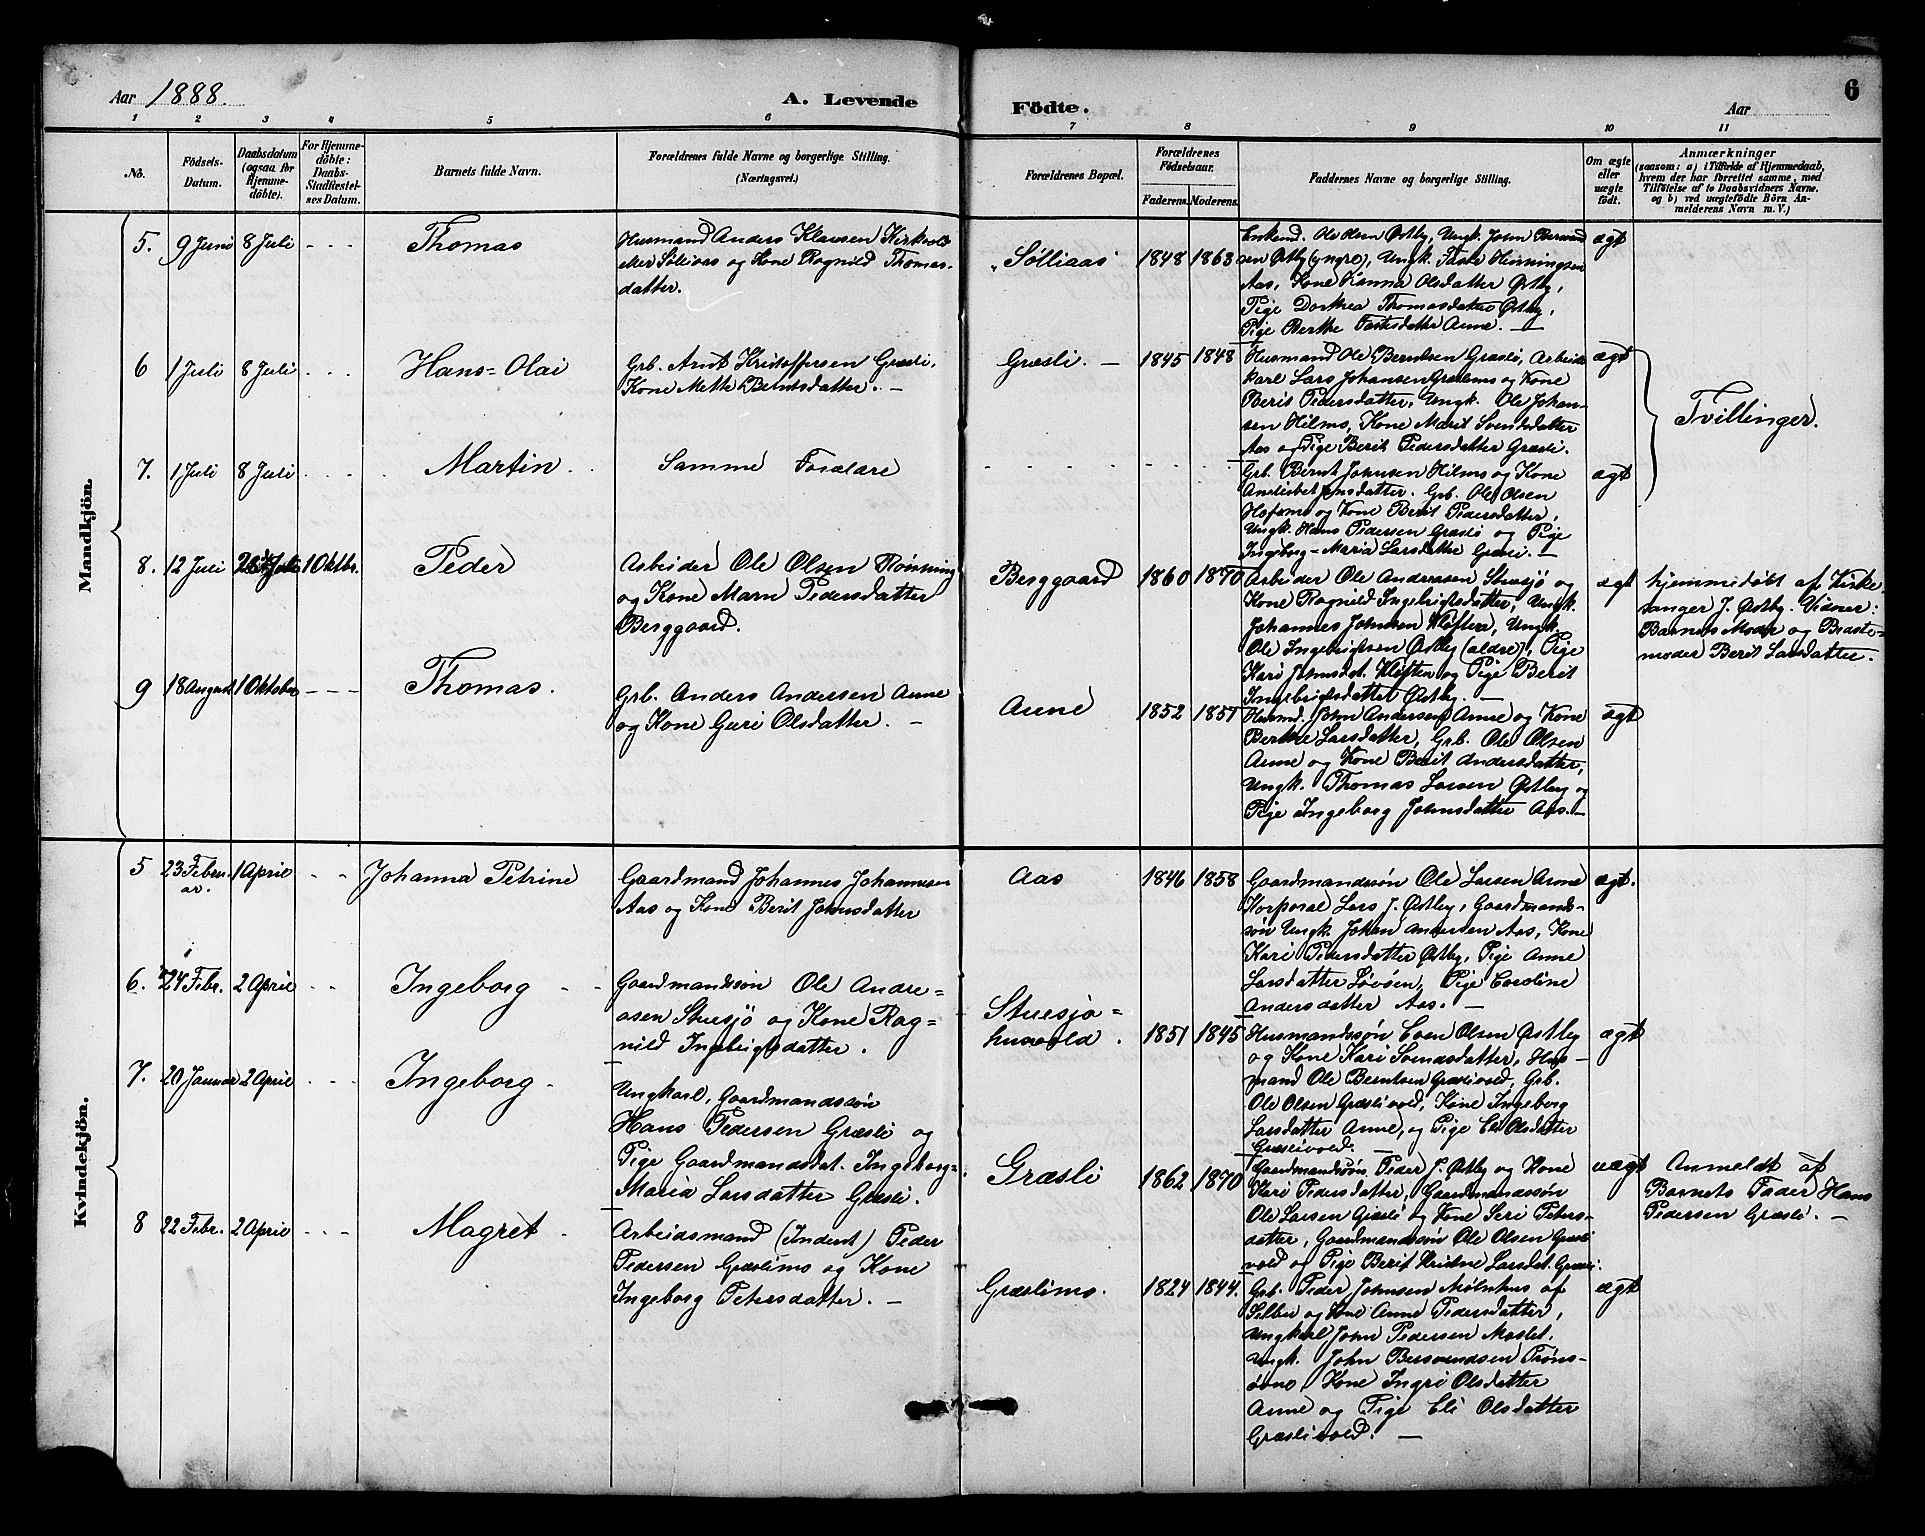 Aar 1888. A. Levende Födte. Aar 6
1 2 3 4 5 6 7 8 9 10 11
No.
Födsels-Datum.
Daabsdatum (ogsaa for Hjemmedöbte).
For Hjemmedöbte: Daabs-Stadfæstelses Datum.
Barnets fulde Navn.
Forældrenes fulde Navne og borgerlige Stilling. (Næringsvei.)
Forældrenes Bopæl.
Forældrenes Födselsaar. Faderens. Moderens.
Faddernes Navne og borgerlige Stilling.
Om ægte eller uægte födt.
Anmærkninger
(saasom: a) i Tilfælde af Hjemmedaab,
hvem der har forrettet samme, med
Tilföielse af to Daabsvidners Navne.
og b) ved uægtefödte Börn Anmelderens Navn m. V.)
Mandkjön.
5. 9 Juni 8 Juli - - - Thomas
Husmand Anders Klausen
Sølliaas og Kone Ragnild Thomas-
datter.
"Sølliaas" 1848 1863
Enkemd. Ole Olsen Østby, Ungk. John
sen Østby (yngre), Ungk. Henningsen
Aas, Kone Olsdatter Østby,
Pige Dorthea Thomasdatter Østby,
Pige Berthe Anne. -
ægt
6 1 Juli 8 Juli - - - Hans=Olai
Grb. Arnt Kristoffersen Græsli,
Kone Mette Berntsdatter. -
Græsli. - 1845 1848
Husmand Ole Berntsen Græsli, Arbeids
karl Lars Johansen Græslimo og Kone
Berit Pedersdatter, Ungk. Ole Johan-
sen Hilmo, Kone Marit Svendsdatter
Aas og Pige Berit Pedersdatter Græsli.
ægt
Tvillinger.
7. 1 Juli 8 Juli - - - Martin.
Samme Forældre
Grb. Bernt Johnsen Hilmo og Kone
Jensdatter. Grb. Ole Olsen
og Kone Berit Pedersdatter,
Ungk. Hans Pedersen Græsli og Pige
Ingeborg-Maria Larsdatter Græsli. -
ægt
8. 12 Juli Juli 1 Oktbr. Peder
Arbeider Ole Olsen Rønning
og Kone Pedersdatter
Berggaard.
Berggaard 1860 1870
Arbeider Ole Andreasen Stuesjø og
Kone Ragnild Ingebrigtsdatter, Ungk.
Johannes Johnsen Kløften, Ungk.
Ole Ingebrigtsen Østby (ældre), Pige
Kari Johnsdat. Kløften og Pige Berit
Ingebrigtsdatter Østby. -
ægt
hjemmedøbt af Kirke-
sanger J. Østby. Vidner:
Barnets Moder og Bedste-
moder Berit Larsdatter.
9 18 August 1 Oktober - - - Thomas.
Grb. Anders Andersen Aune
og Kone Guri Olsdatter. -
Aune 1852 1851
Husmd. John Andersen Aune og Kone
Berthe Larsdatter, Grb. Ole Olsen
Aune og Kone Berit Andersdatter,
Ungk. Thomas Larsen Østby og
Pige Ingeborg Johnsdatter Aas. -
ægt
Kvindekjön.
5 23 Febru-ar. 1 April - - Johanna Petrine
Gaardmand Johannes Johannesen
Aas og Kone Berit Johnsdatter
Aas 1846 1858
Gaardmandssøn Ole Larsen Aune
Korporal Lars J. Østby, Gaardmands-
søn Ungk. Johan Andersen Aas, Kone
Kari Pedersdatter Østby, Pige Anne
Larsdatter Løvøen, Pige Caroline
Andersdatter Aas. -
ægt.
6. 24 Febr. 2 April - - Ingeborg - -
Gaardmandssøn Ole Andre-
asen Stuesjø og Kone Rag=
nild Ingebrigtsdatter.
Stuesjø=
husvold. 1851 1845
Husmandssøn Even Olsen Østby
og Kone Kari Svendsdatter, Hus-
mand Ole Berntsen Græslivold, Grb.
Ole Olsen Græslivold, Kone Ingeborg
Larsdatter Aune, og Pige Eli Olsdatter
Græslivold. -
ægt
7. 20 Januar 2 April - - - Ingeborg -
Ungkarl, Gaardmandssøn
Hans Pedersen Græsli og
Pige Gaardmandsdat. Ingeborg=
Maria Larsdatter Græsli.
Græsli 1862 1870
Gaardmandssøn Peder J. Østby og Kone
Kari Pedersdatter, Gaardmandssøn
Ole Larsen Græsli og Kone Seri Peters-
datter, Gaardmandssøn Ole Olsen Græsli
vold og Pige Berit Kristine Larsdat. Græsli.
uægt
Anmeldt af
Barnets Fader Hans
Pedersen Græsli. -
8 22 Febr. 2 April - - - Magret -
Arbeidsmand (Inderst) Peder
Pedersen Græslimo og Kone
Ingeborg Petersdatter. -
Græslimo. 1824 1844.
Grb. Peder Johnsen Mølnhus af
Selbu og Kone Anne Pedersdatter,
Ungkarl John Pedersen Moslet,
Ungk. John Bersvendsen Trøns-
øino, Kone Ingri Olsdatter
Aune og Pige Eli Olsdatter
Græslivold. -
ægt